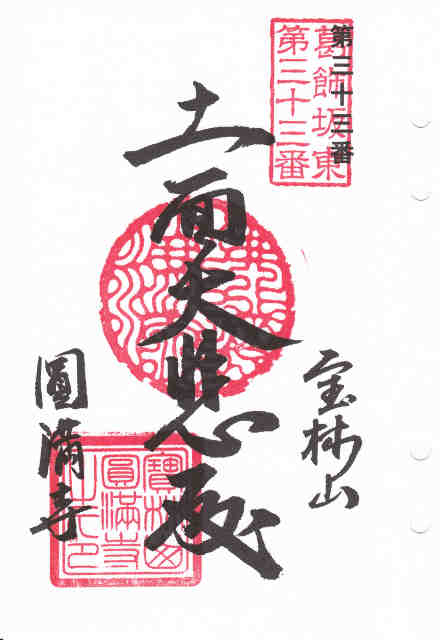 葛飾坂東
第三十三番
第三十三番
宝林山
十一面大悲殿
圓満寺
寶林山
圓滿寺